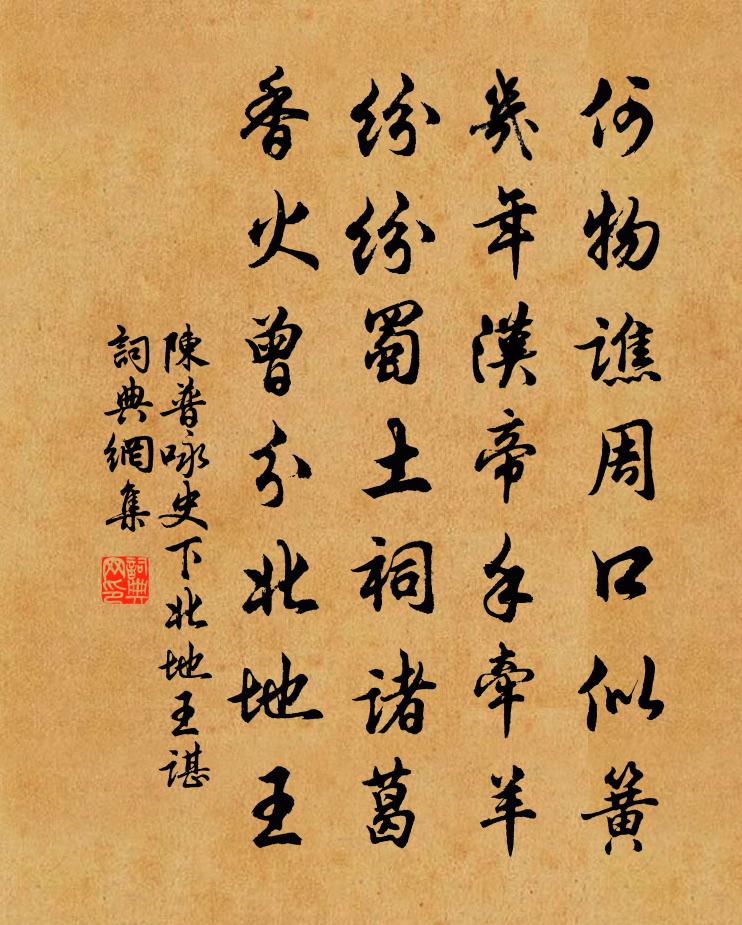 何物譙周口似簧
幾年漢帝手牽羊
紛紛蜀土祠諸葛
香火曾分北地王
陳普咏史下北地王諶
詞典網集
詞典
网印